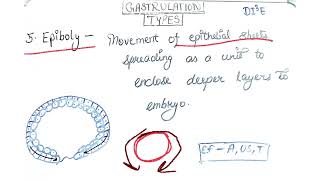 GASTRULATION
TYPES
DI³E
5. Epiboly – Movement of epithelial sheets
spreading as a unit to
enclose deeper layers to
embryo.
Ef – A, US, T